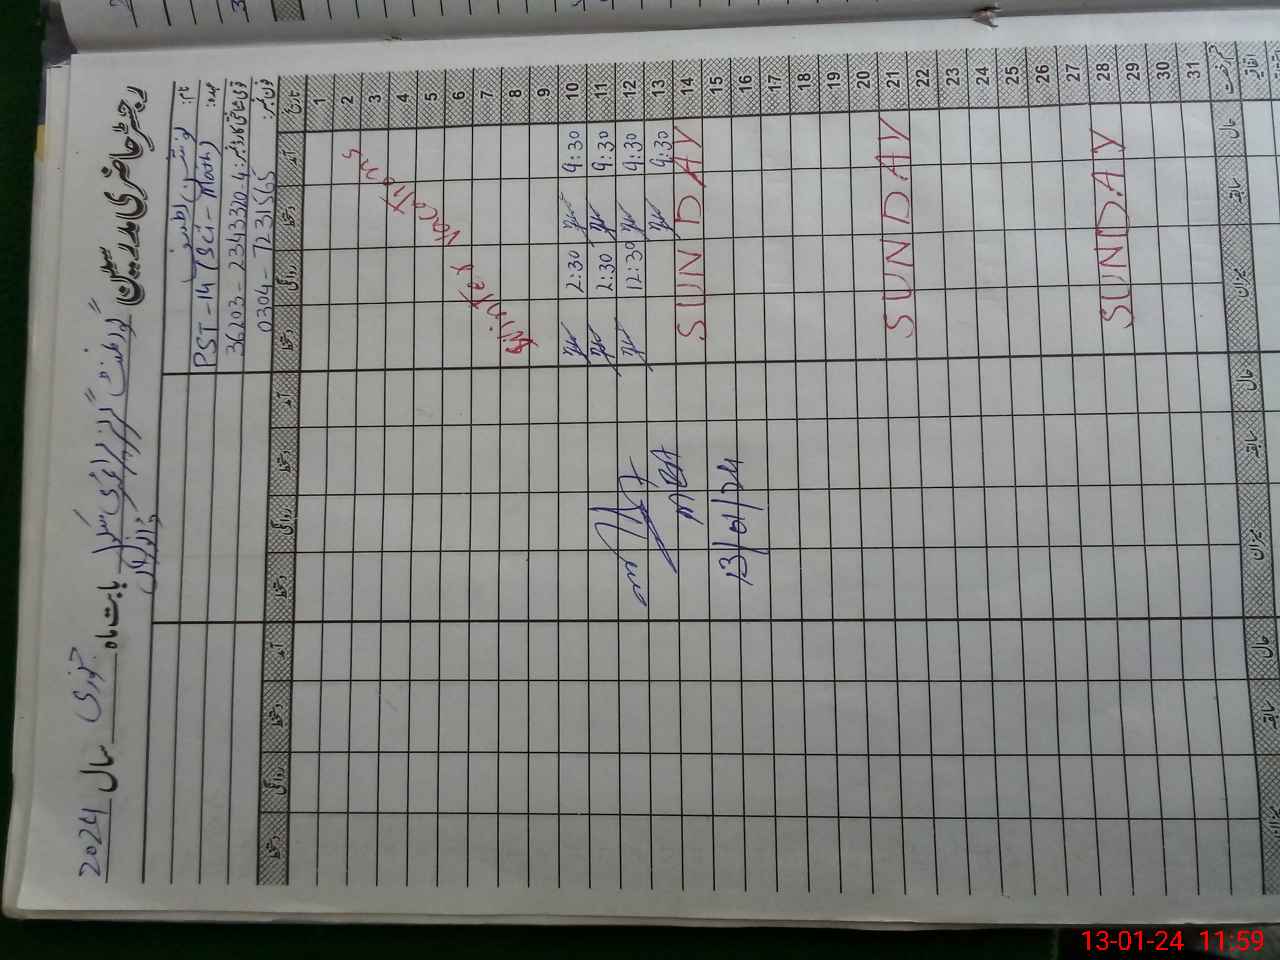 رجسٹر حاضری مدرسین گورنمنٹ گرلز پرائمری سکول بابت ماہ جنوری سال 2024
نام:
عہدہ: PST-14 (Sci-Math)
قومی شناختی کارڈ نمبر: 36203-2343320-4
فون نمبر: 0304-7231565
تاریخ آمد دستخط روانگی دستخط آمد دستخط روانگی دستخط آمد دستخط روانگی دستخط
1
2
3
4
5
6
7
8
9
Winter Vacations
10 9:30 2:30
11 9:30 2:30
12 9:30 12:30
13 9:30
AEO
14 SUNDAY
15
13/01/24
16
17
18
19
20
21 SUNDAY
22
23
24
25
26
27
28 SUNDAY
29
30
31
حال سابقہ میزان حال سابقہ میزان حال سابقہ میزان
13-01-24 11:59